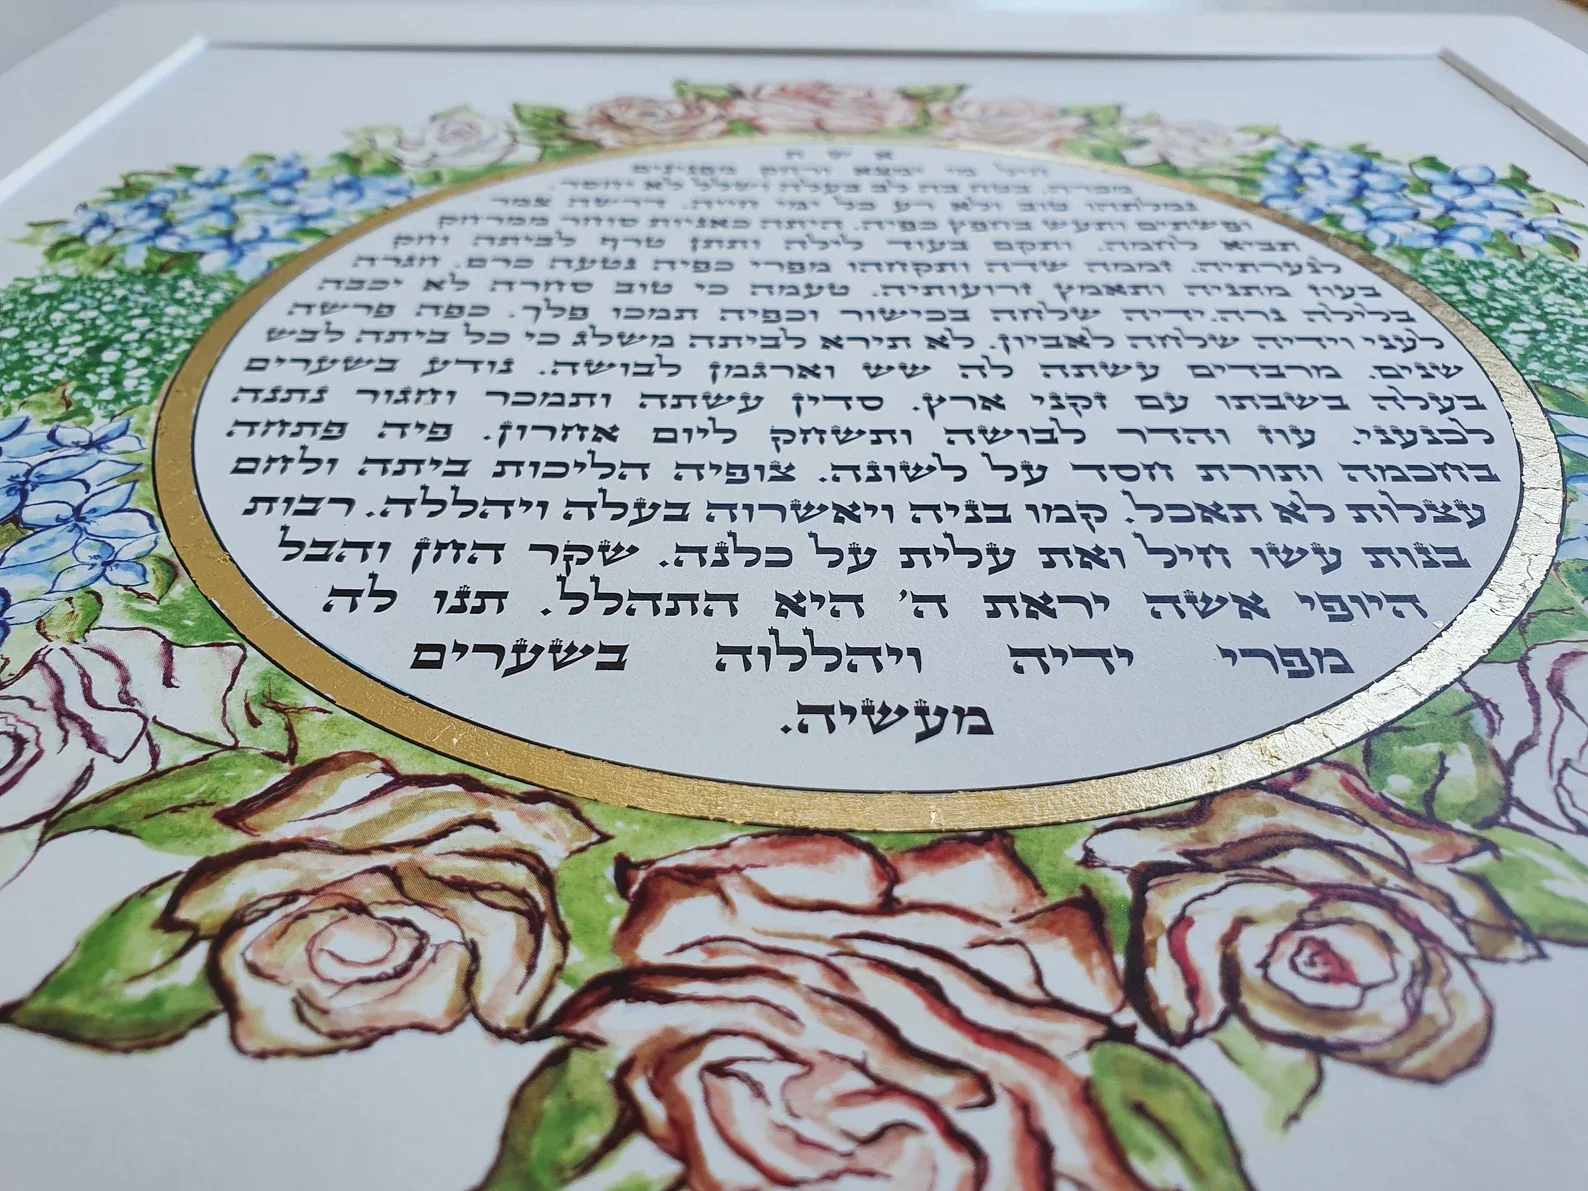 אשת
חיל מי ימצא ורחק מפנינים
מכרה. בטח בה לב בעלה ושלל לא יחסר.
גמלתהו טוב ולא רע כל ימי חייה. דרשה צמר
ופשתים ותעש בחפץ כפיה. היתה כאניות סוחר ממרחק
תביא לחמה. ותקם בעוד לילה ותתן טרף לביתה וחק
לנערתיה. זממה שדה ותקחהו מפרי כפיה נטעה כרם. חגרה
בעוז מתניה ותאמץ זרועותיה. טעמה כי טוב סחרה לא יכבה
בלילה נרה.ידיה שלחה בכישור וכפיה תמכו פלך. כפה פרשה
לעני וידיה שלחה לאביון. לא תירא לביתה משלג כי כל ביתה לבש
שנים. מרבדים עשתה לה שש וארגמן לבושה. נודע בשערים
בעלה בשבתו עם זקני ארץ. סדין עשתה ותמכר וחגור נתנה
לכנעני. עוז והדר לבושה ותשחק ליום אחרון. פיה פתחה
בחכמה ותורת חסד על לשונה. צופיה הליכות ביתה ולחם
עצלות לא תאכל. קמו בניה ויאשרוה בעלה ויהללה. רבות
בנות עשו חיל ואת עלית על כלנה. שקר החן והבל
היופי אשה יראת ה' היא התהלל. תנו לה
מפרי ידיה ויהללוה בשערים
מעשיה.